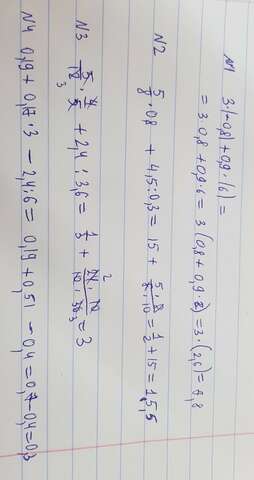 N1 3·|-0,8|+0,9·|6|=
= 3·0,8+0,9·6 = 3(0,8+0,9·2)=3·(2,6)=7,8
N2 5/8 · 0,8 + 4,5:0,3 = 15 + 5·8/8·10 = 1/2 + 15 = 15,5
N3 5/12 · 4/5 + 2,4 : 3,6 = 1/3 + 24·10/10·36 = 3
N4 0,19 + 0,17·3 - 2,4:6 = 0,19 + 0,51 - 0,4 = 0,7-0,4=0,3